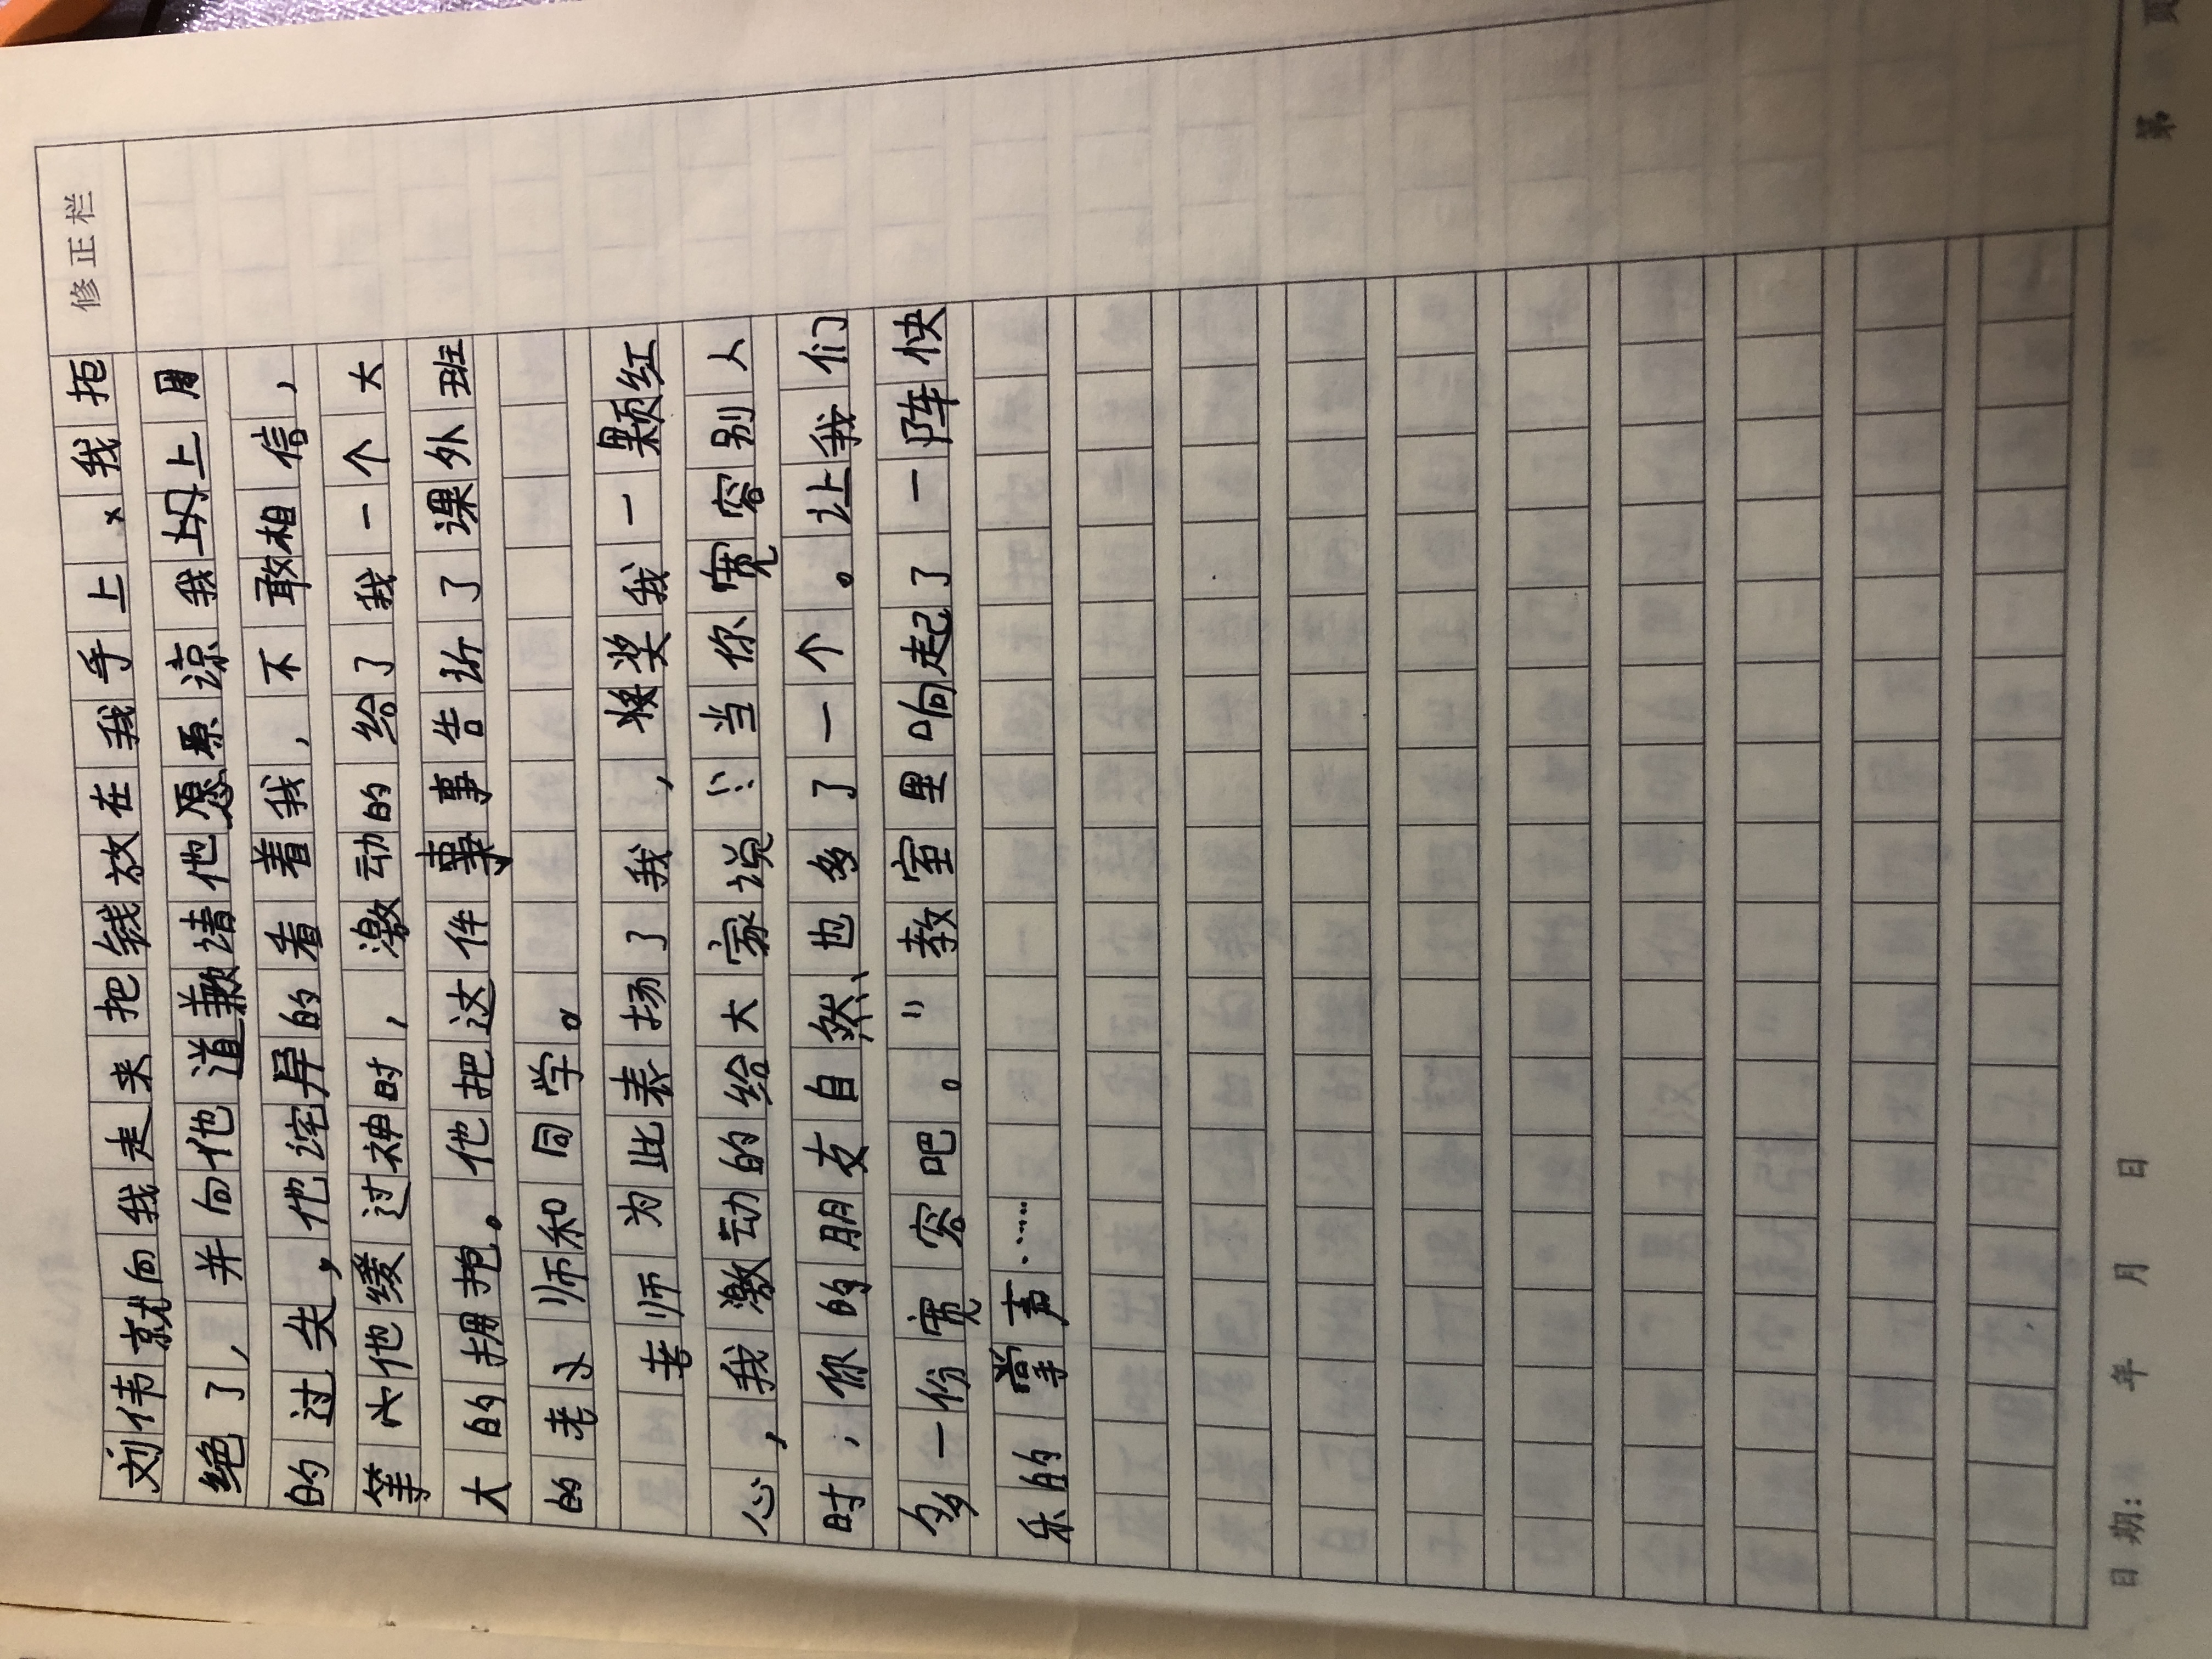 修正栏
刘伟就向我走来把钱放在我手上,我拒
绝了,并向他道歉请他原谅我上周
的过失,他诧异的看着我,不敢相信,
等他缓过神时,激动的给了我一个大
大的拥抱。他把这件事告诉了课外班
的老师和同学。
老师为此表扬了我,奖我一颗红
心,我激动的给大家说:“当你宽容别人
时,你的朋友自然也多了一个。让我们
多一份宽容吧。”教室里响起了一阵快
乐的掌声……
日期: 年 月 日 第 页